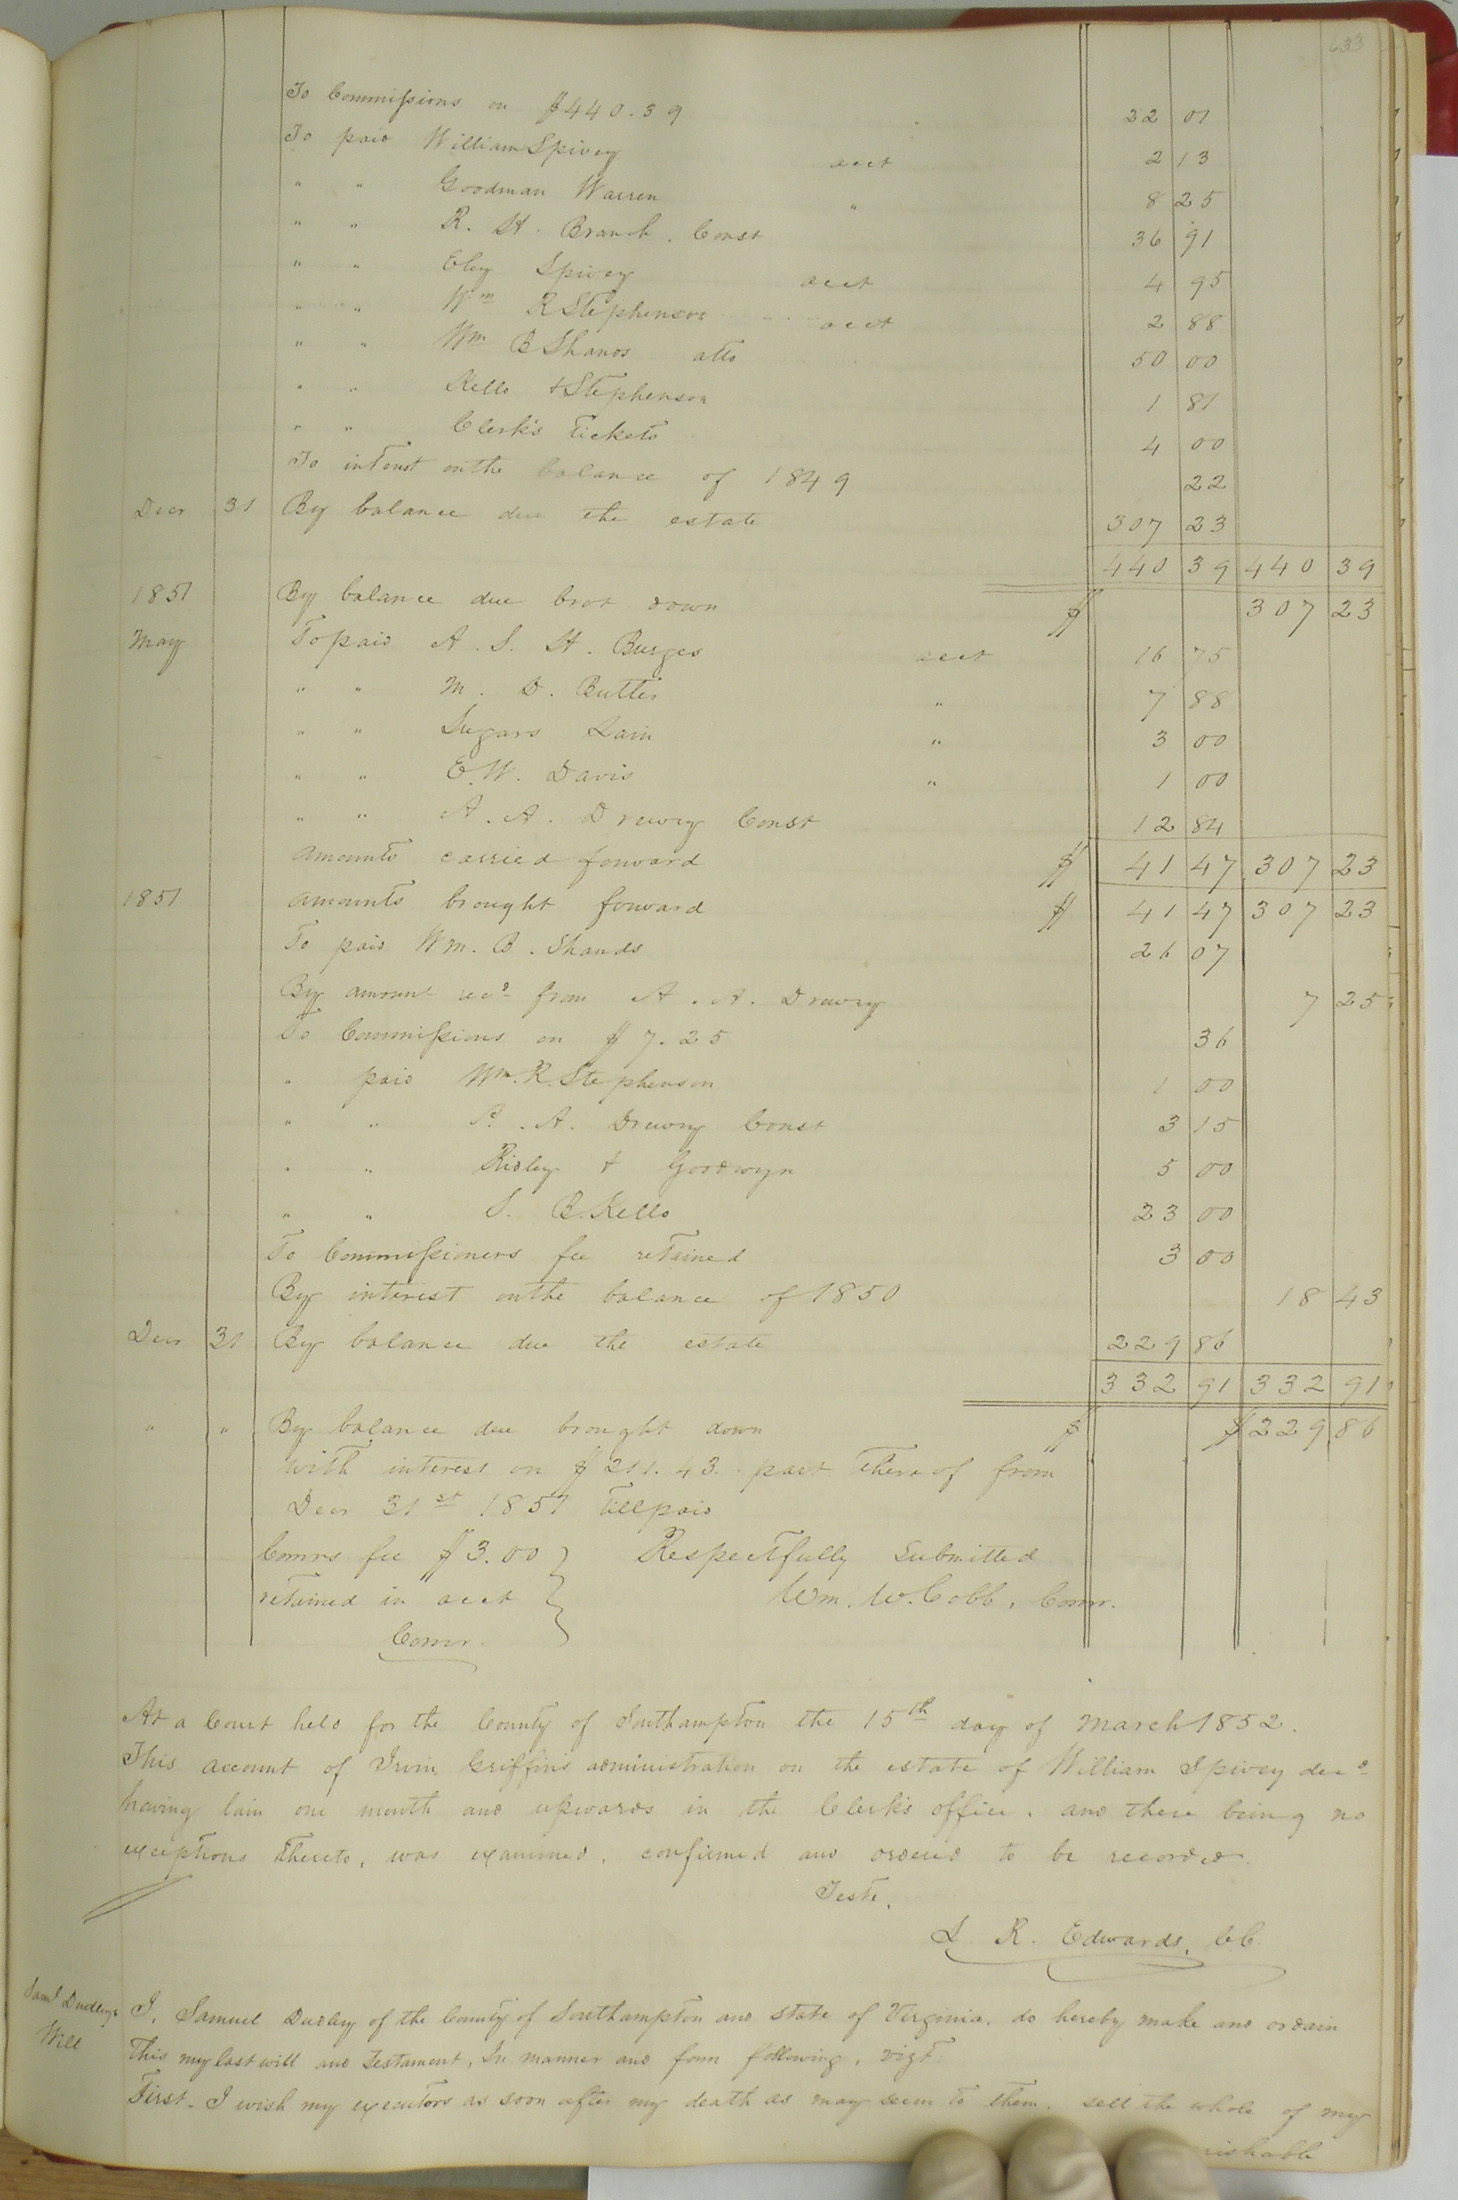 633
To Commissions on $440.39 22 01
To paid William Spivey acct 2 13
" " Goodman Warren " 8 25
" " R. H. Branch. Const 36 91
" " Eley Spivey acct 4 95
" " Wm R Stephenson acct 2 88
" " Wm B Shands atto 50 00
" " Kello & Stephenson 1 81
" " Clerk's tickets 4 00
To interest on the balance of 1849 22
Decr 31 By balance due the estate 307 23
440 39 440 39
1851 By balance due brot down $ 307 23
May To paid A. S. H. Burges acct 16 75
" " M. D. Butler " 7 88
" " Sugars Lain " 3 00
" " E. W. Davis " 1 00
" " A. A. Drewry Const 12 84
amounts carried forward $ 41 47 307 23
1851 amounts brought forward $ 41 47 307 23
To paid Wm. B. Shands 26 07
By amount recd from A. A. Drewry 7 25
To Commissions on $7.25 36
" paid Wm. R. Stephenson 1 00
" " A. Drewry Const 3 15
" " Ridley & Goodwyn 5 00
" " S. B. Kello 23 00
To Commissioners fee retained 3 00
By interest on the balance of 1850 18 43
Decr 31 By balance due the estate 229 86
332 91 332 91
" " By balance due brought down $ $229 86
with interest on $211.43. part thereof from
Decr 31st 1851 till paid
Comrs fee $3.00 } Respectfully Submitted
retained in acct } Wm. W. Cobb, Comr.
Comr.
At a Court held for the County of Southampton the 15th day of March 1852.
This account of Irvin Griffin's administration on the estate of William Spivey decd
having lain one month and upwards in the Clerk's office, and there being no
exceptions thereto, was examined, confirmed and ordered to be recorded.
Teste,
L. R. Edwards, CC.
Saml Dudleys
Will
I, Samuel Dudley of the County of Southampton and State of Virginia, do hereby make and ordain
this my last will and testament, In manner and form following, vizt.
First. I wish my executors as soon after my death as may seem to them, sell the whole of my